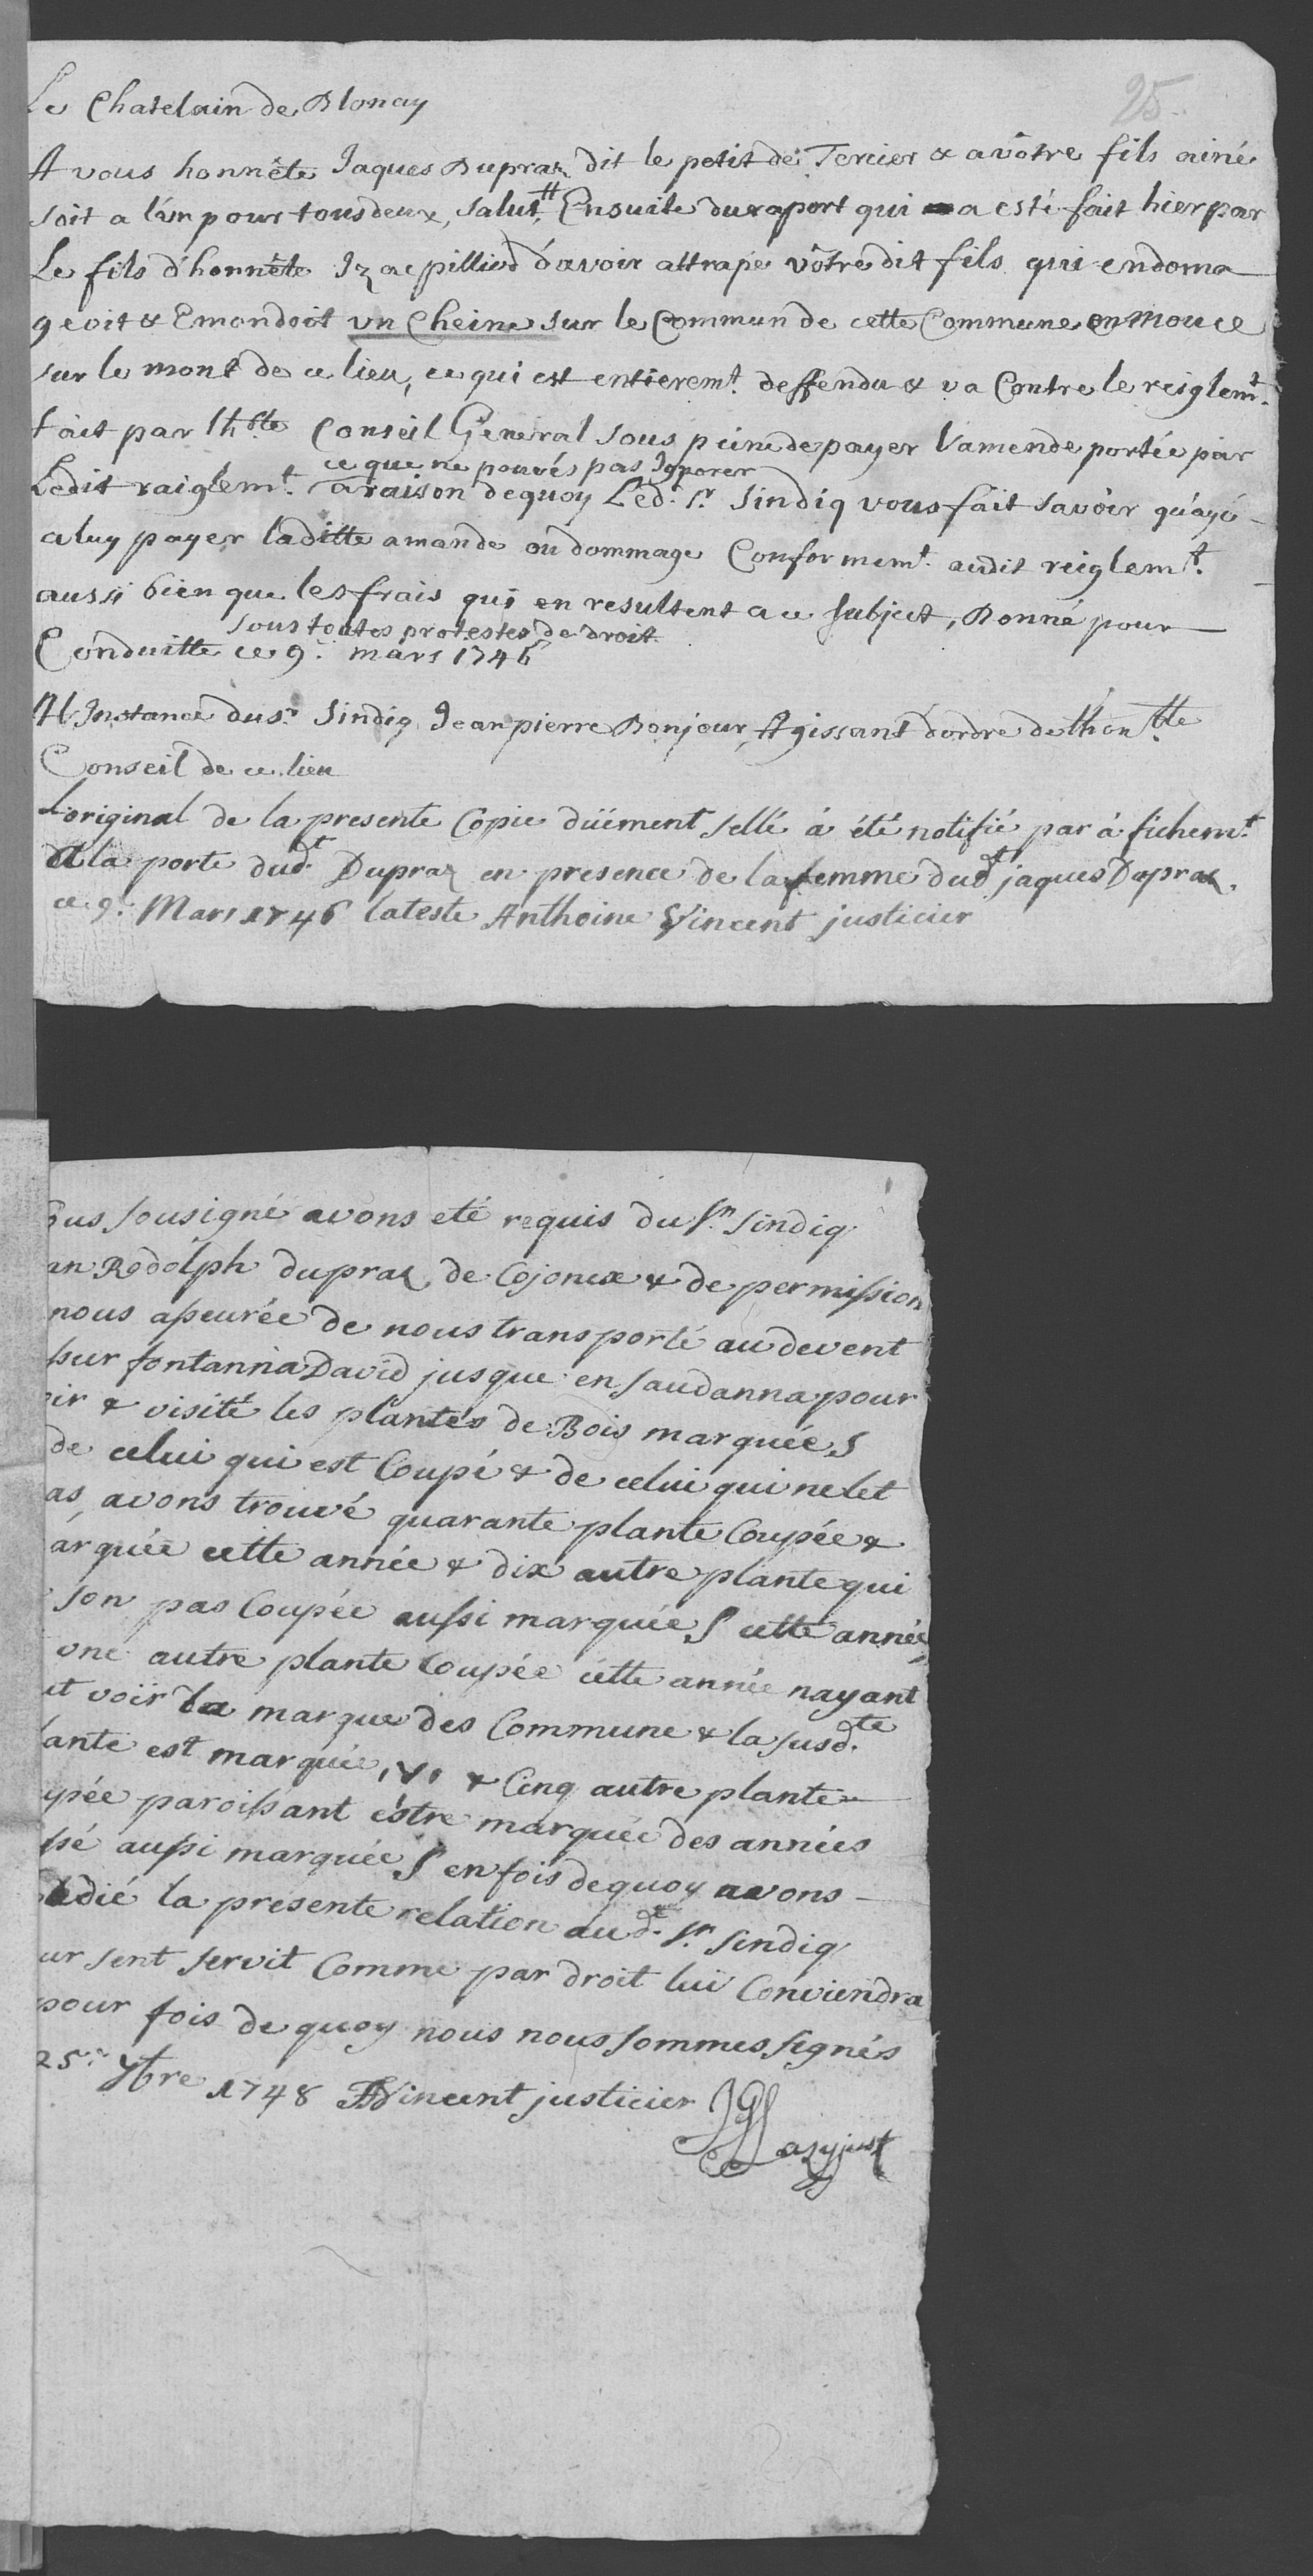 25.
Le Chatelain de Blonay
A vous honnête Jaques Dupraz dit le petit de Tercier & a vôtre fils ainé
soit a l'un pour tous deux, salutt. Ensuite du raport qui a esté fait hier par
Le fils d'honnête Izac pilliod d'avoir attrapé vôtre dit fils qui endoma
geoit & Emondoit un Cheine sur le Commun de cette Commune en Mouce
sur le mont de ce lieu, ce qui est entieremt. deffendu & va Contre le reiglemt.
fait par lh.ble Conseil General sous peine de payer l'amende portée par
ce que ne pouvés pas Ignorer
Ledit raiglemt. a raison dequoy Led.t Sr. Sindiq vous fait savoir qu'ayé
a luy payer laditte amande ou dommage Conformemt. audit reiglemt.
aussi bien que les frais qui en resultent a ce subject, Donné pour
sous toutes protestes de droit
Conduitte ce 9e. mars 1746
A l'Instance du sr. Sindiq Jean pierre Bonjour, Agissant d'ordre de lhon.ble
Conseil de ce lieu
L'original de la presente Copie düement sellé à été notifié par à fichemt.
a la porte dudt. Dupraz en presence de la femme dudt jaques Dupraz
ce 9e. Mars 1746 lateste Anthoine Vincent justicier
ous sousigné avons eté requis du Sr. Sindiq
an Rodolph dupraz de Cojonex & de permission
nous aseurée de nous transporté au devent
sur fontanna David jusque en saudanna pour
oir & visité les plantés de Bois marquée S
de celui qui est Coupé & de celui qui ne let
as, avons trouvé quarante plante Coupée &
arquée cette année & dix autre plante qui
son pas Coupée aussi marquée S cette année
une autre plante Coupée cette année nayant
ut voir la marque des Commune & la susd.te
lante est marquée, V, & Cinq autre plante
upée paroissant estre marquée des années
ssé aussi marquée S en fois dequoy avons
pedié la presente relation audt. Sr. Sindiq
ur sent servit Comme par droit lui Conviendra
pour fois de quoy nous nous sommes signés
25e. 7bre 1748 A Vincent justicier